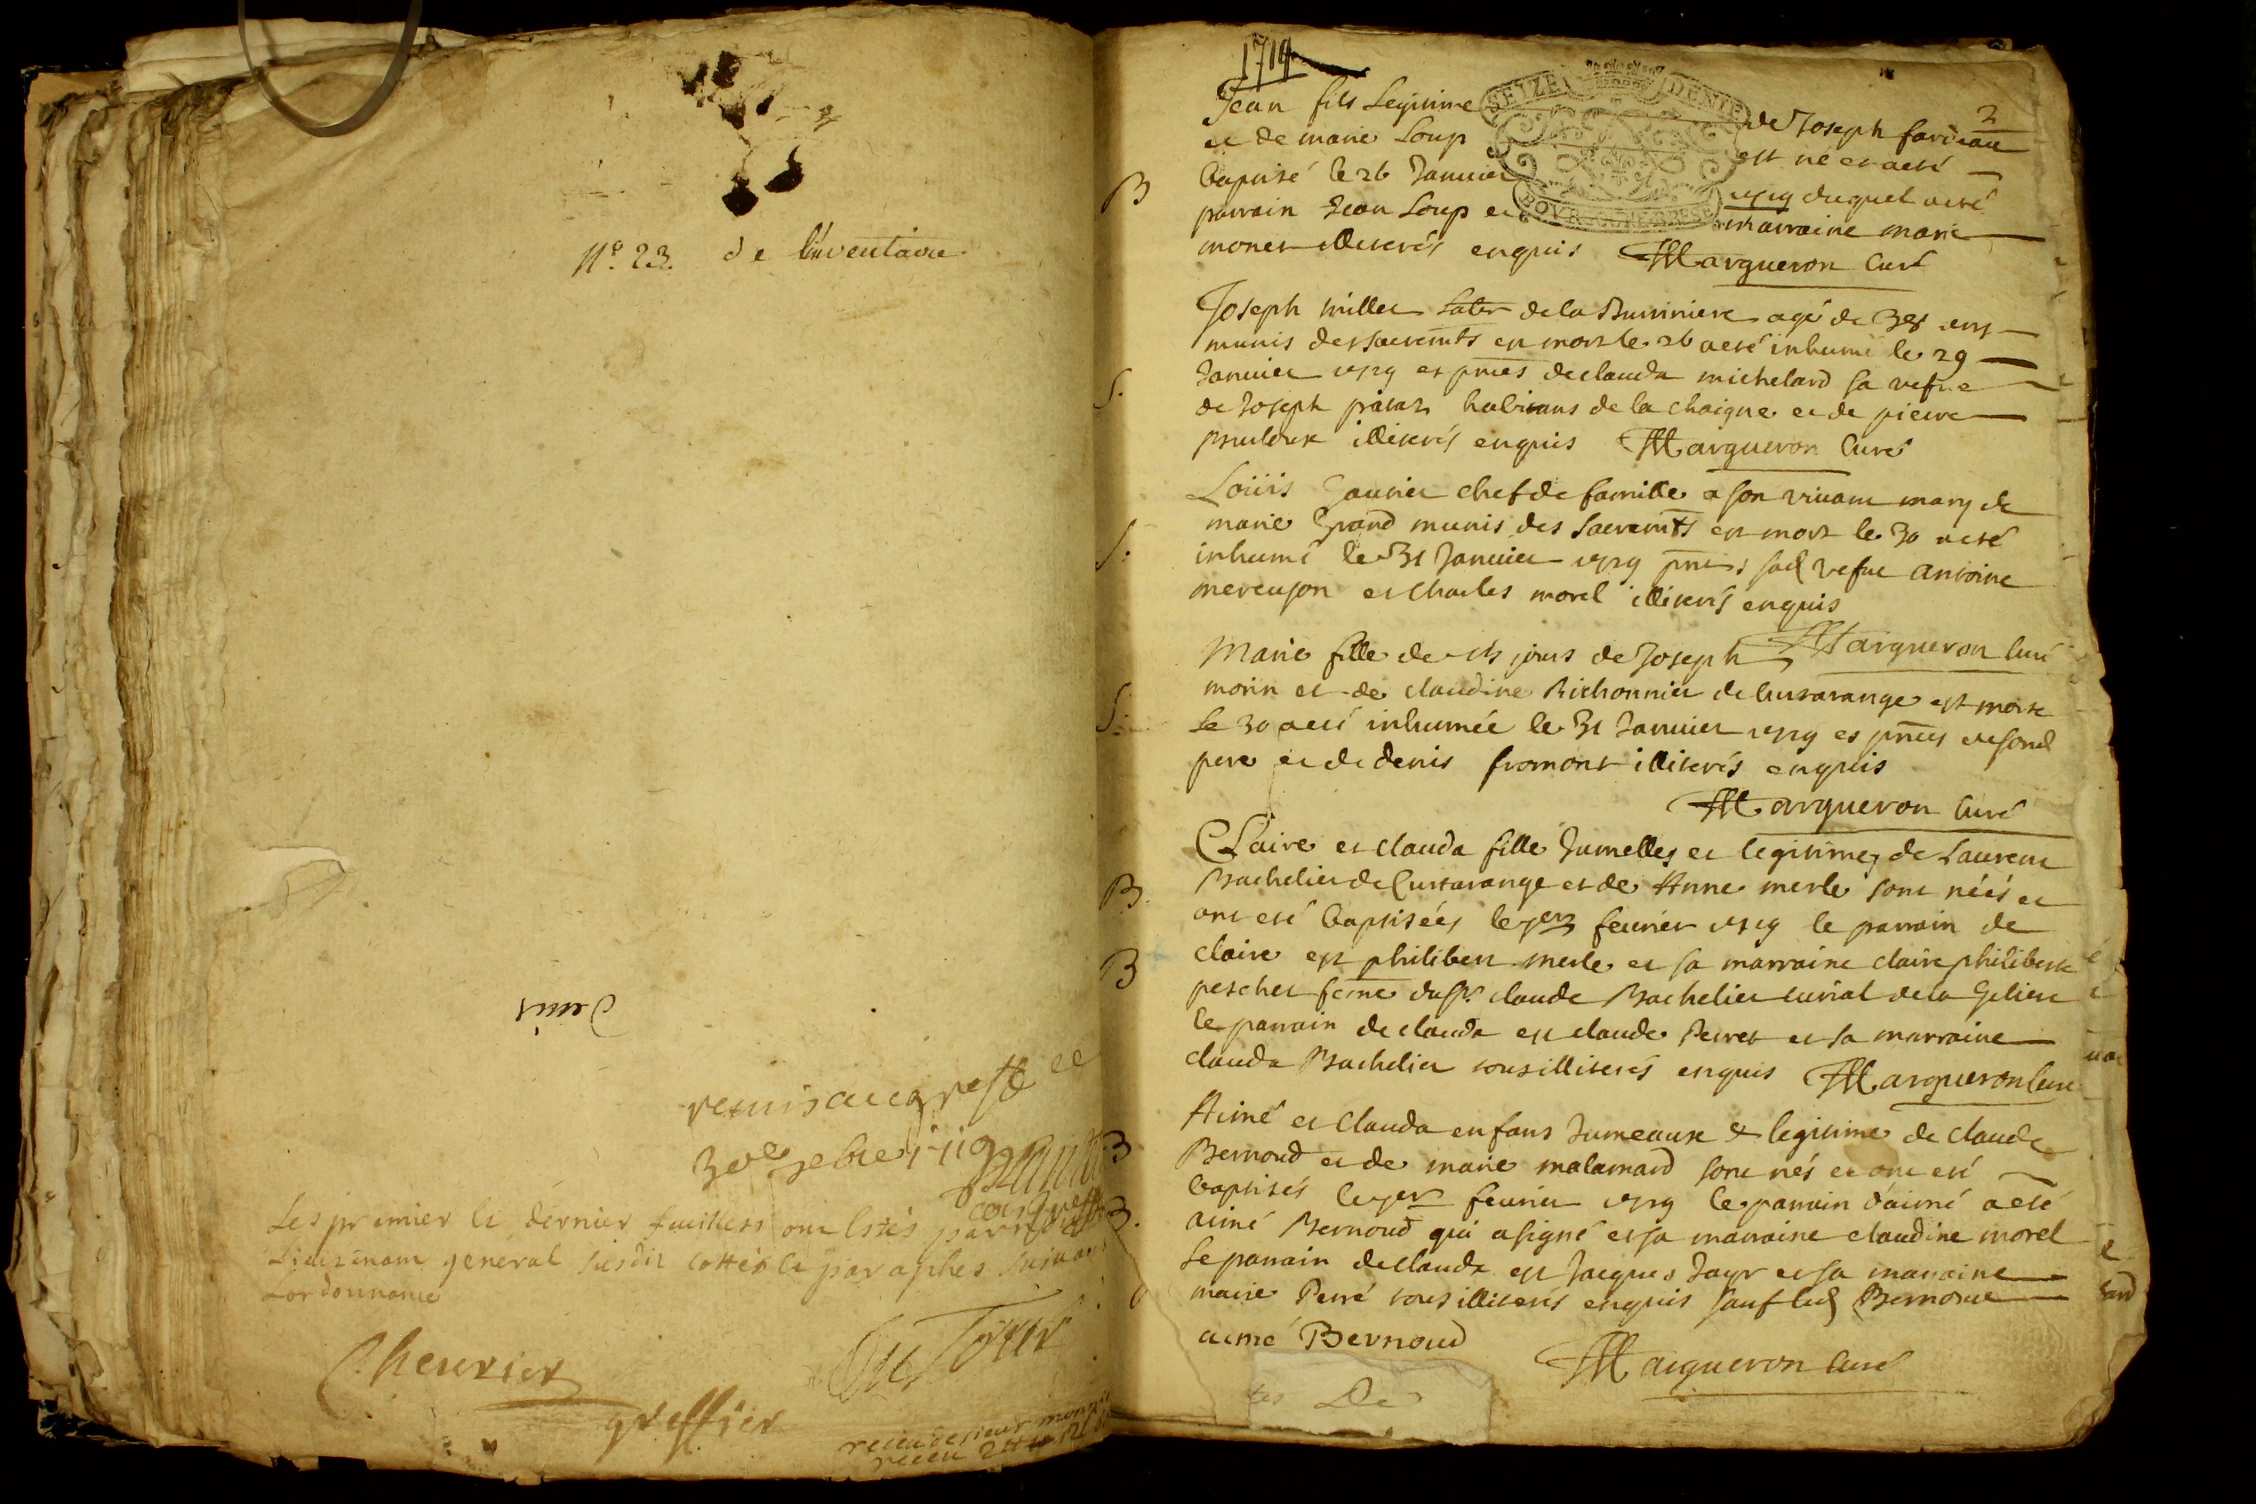 N.º 23. de l'inventaire
Denis
remis au greffe ce
Les premier et dernier feuillets ont estés par nous
Lieutenant general susdit cottés et paraphes suivant
Lordonnance
Cheurier
greffier
receu
1719
2
SEIZE DENIERS
BOVRG
Jean fils Legitime de Joseph
et de marie Loup est né et a eté
B baptisé le 26 Januier 1719 duquel a eté
parrain Jean Loup et marraine marie
monet illiterés enquis Margueron Curé
Joseph millet de la agé de 38 ans
munis des sacremts est mort le 26 a eté inhumé le 29
S. Januier 1719 es pnces de clauda michelard sa vefue
de Joseph habitans de la chaigne et de pierre
illiterés enquis Margueron Curé
Loüis Gaurier chef de famille a son viuant mary de
marie Grand munis des Sacremts est mort le 30 a eté
S. inhumé le 31 Januier 1719 pnts sad vefue antoine
et Charles morel illiterés enquis
Margueron Curé
Marie fille de jours de Joseph
morin et de claudine Richonnier de Curtarange est morte
S. Le 30 a eté inhumée le 31 Januier 1719 es pnces de sond
pere et de denis fromont illiterés enquis
Margueron Curé
Claire et clauda fille Jumelles et legitimes de Laurent
B. Bachelier de Curtarange et de Anne merle sont néés et
ont eté baptisées le 1er feurier 1719 le parrain de
B claire est philibert merle et sa marraine claire philiberte
peschet feme du sr claude Bachelier curial de la
le parrain de clauda est claude Perret et sa marraine
clauda Bachelier tous illiterés enquis Margueron Curé
Aimé et Clauda enfans Jumeaux & legitime de claude
B Bernoud et de marie malamard sont nés et ont eté
baptisés le 1er feurier 1719 le parrain d'aimé a eté
B. aimé Bernoud qui a signé et sa marraine claudine morel
Le parrain de clauda est Jacques Jayr et sa maraine
marie Perré tous illiterés enquis sauf led Bernoud
aimé Bernoud
Margueron Curé
De